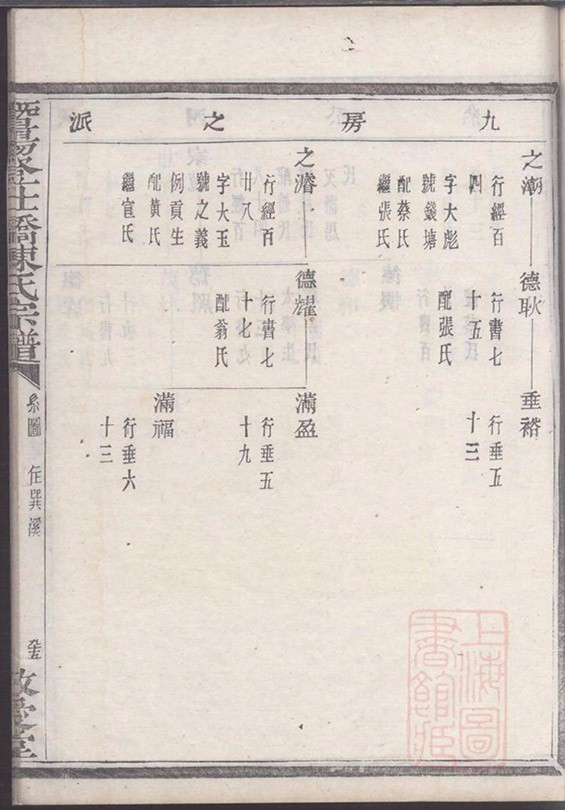 九房之派
之潮
行經百
四
字大彪
號鏡塘
配蔡氏
繼張氏
德耿
行書七
十五
配張氏
垂裕
行垂五
十三
之濬
行經百
廿八
字大玉
號之義
例貢生
配黃氏
繼宣氏
德耀
行書七
十七
配翁氏
滿盈
行垂五
十九
滿福
行垂六
十三
陳氏宗譜
系圖
住巽溪
上海圖
書館藏